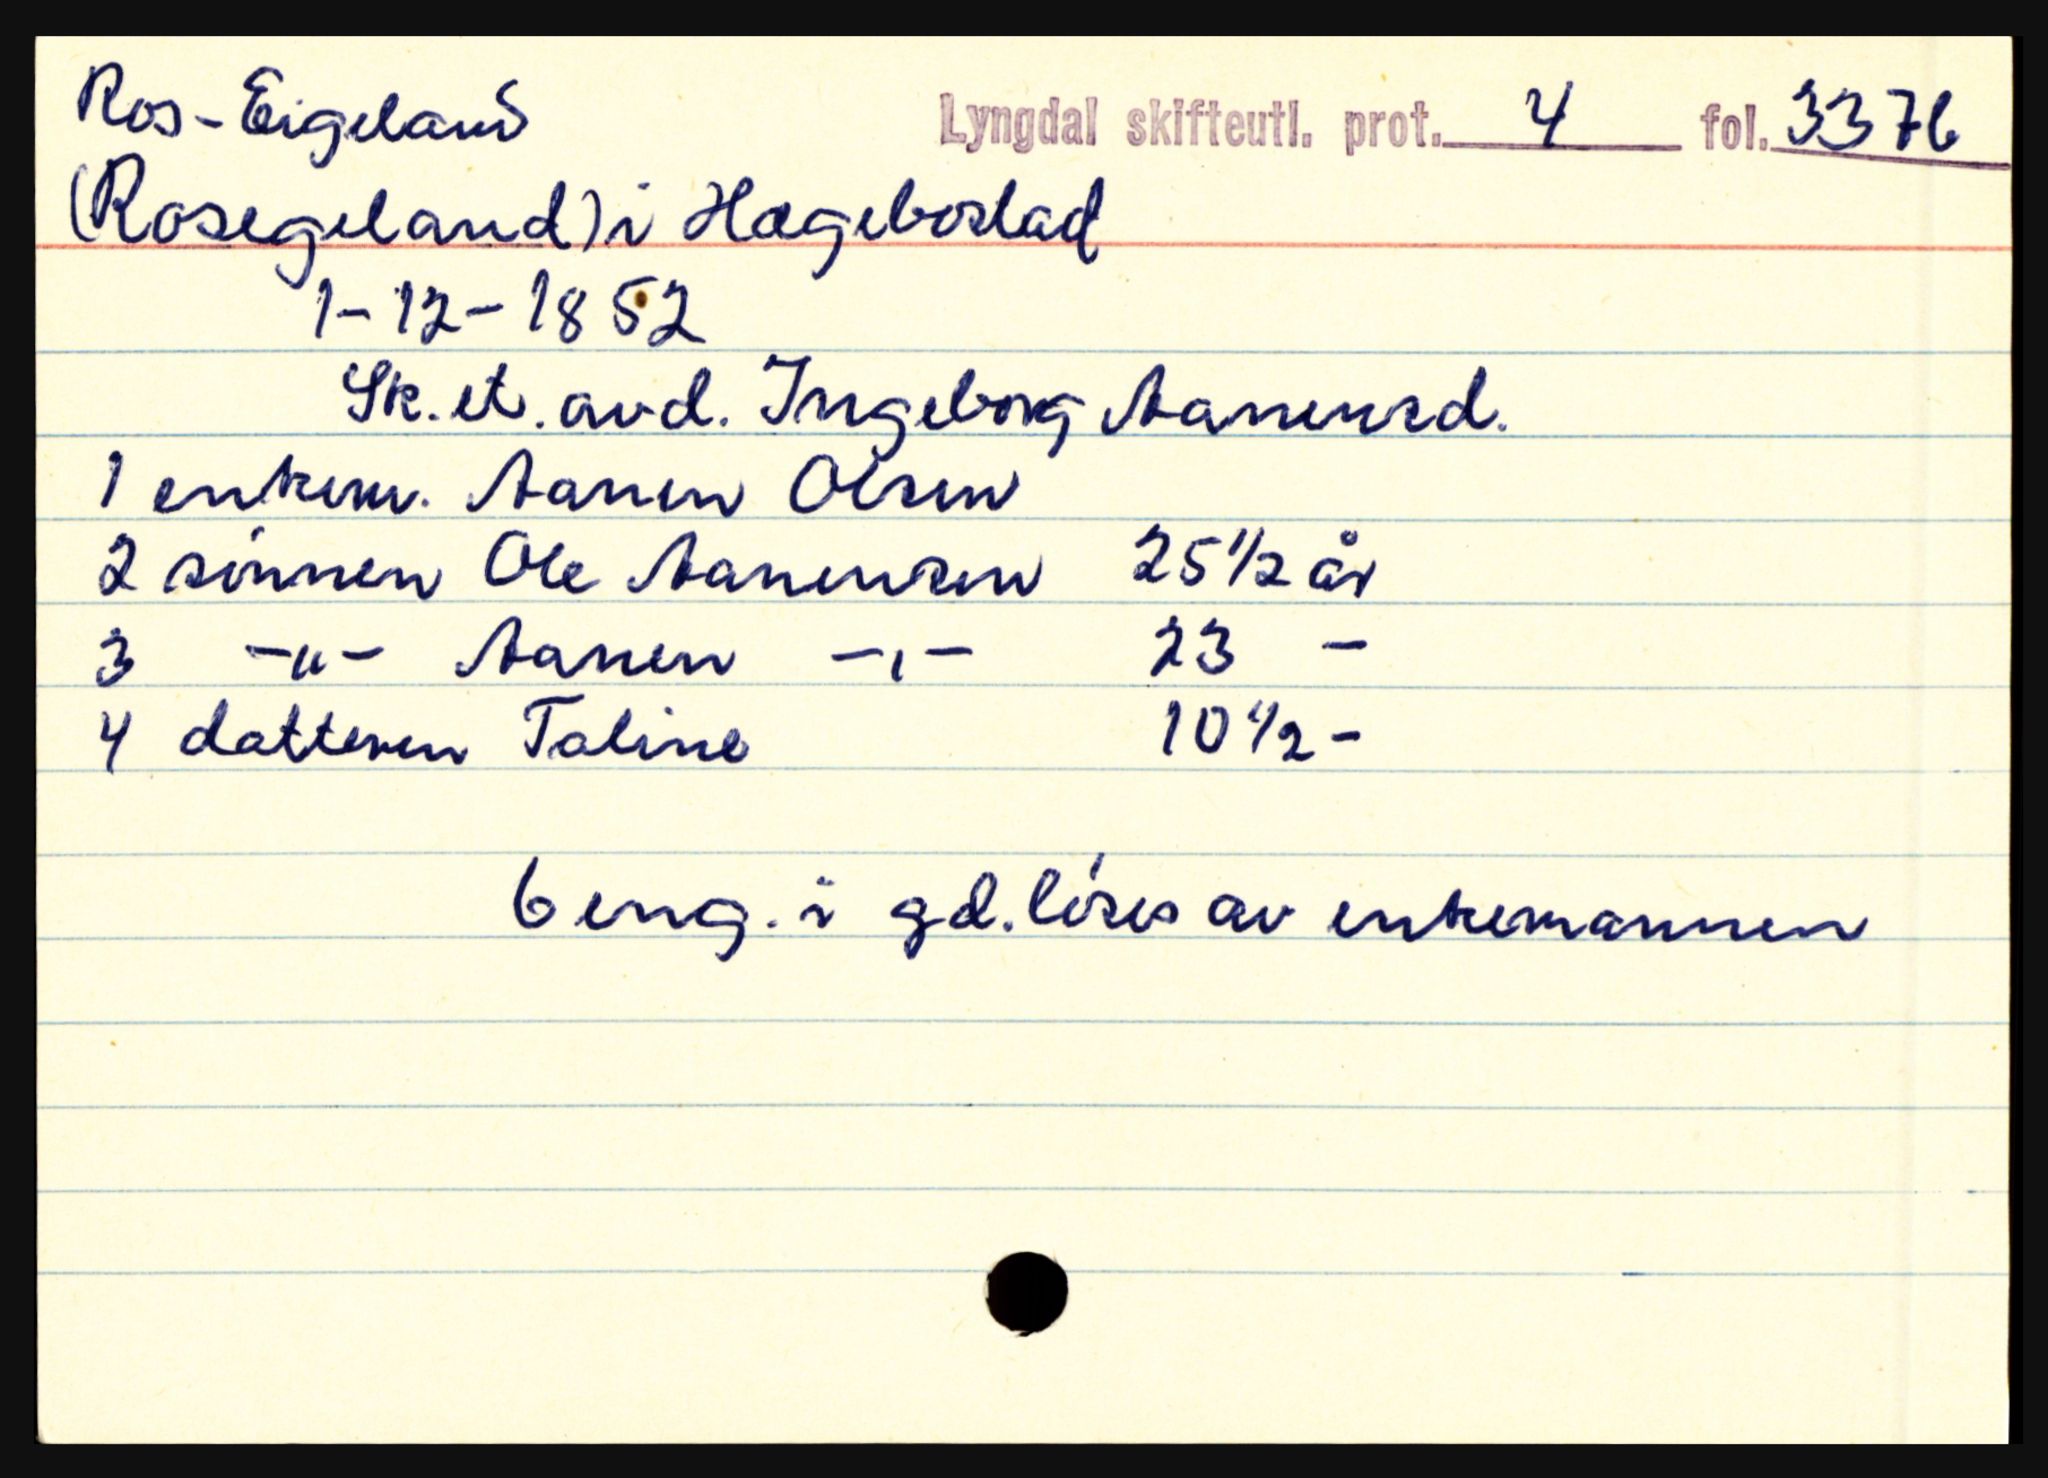 Ros-Eigeland
Lyngdal skifteutl. prot. 4 fol. 337b
(Rosegeland) i Hægebostad
1-12-1852
Sk. et. avd. Ingeborg Aanensd.
1 enkem. Aanen Olsen
2 sønnen Ole Aanensen 25 1/2 år
3 -"- Aanen -,- 23 -
4 datteren Taline 10 1/2 -
6 eng. i gd. løses av enkemannen